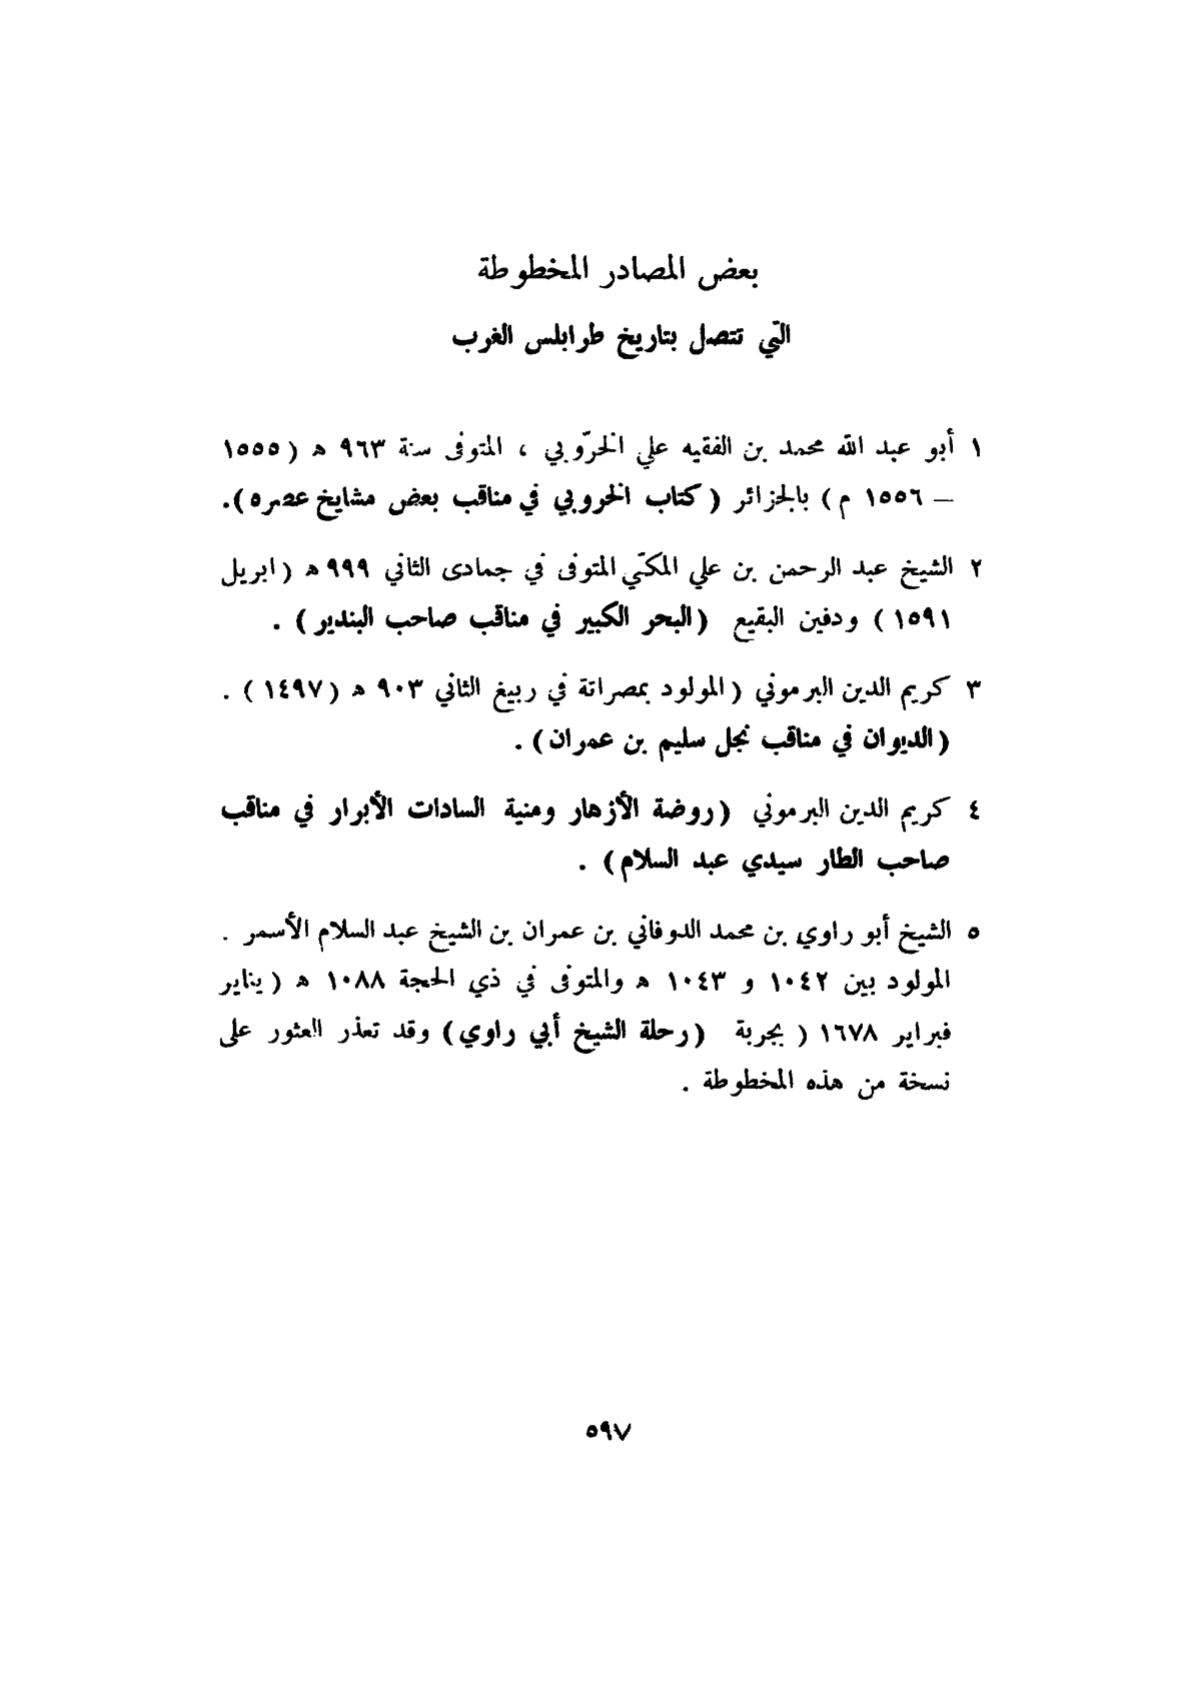 بعض المصادر المخطوطة
التّي تتصل بتاريخ طرابلس الغرب
١ أبو عبد الله محمد بن الفقيه علي الخرّوبي ، المتوفى سنة ٩٦٣ ه ( ١٥٥٥
– ١٥٥٦ م ) بالجزائر ( كتاب الخروبي في مناقب بعض مشايخ عصره).
٢ الشيخ عبد الرحمن بن علي المكتّي المتوفى في جمادى الثاني ٩٩٩ ه ( ابريل
١٥٩١ ) ودفين البقيع (البحر الكبير في مناقب صاحب البندير ) .
٣ كريم الدين البرموني ( المولود بمصراتة في ربيغ الثاني ٩٠٣ ه ( ١٤٩٧ ) .
(الديوان في مناقب نجل سليم بن عمران) .
٤ كريم الدين البرموني (روضة الأزهار ومنية السادات الأبرار في مناقب
صاحب الطار سيدي عبد السلام) .
٥ الشيخ أبو راوي بن محمد الدوفاني بن عمران بن الشيخ عبد السلام الأسمر .
المولود بين ١٠٤٢ و ١٠٤٣ ه والمتوفى في ذي الحجة ١٠٨٨ ه ( يناير
فبراير ١٦٧٨ ( بجربة (رحلة الشيخ أبي راوي) وقد تعذر العثور على
نسخة من هذه المخطوطة .
٥٩٧